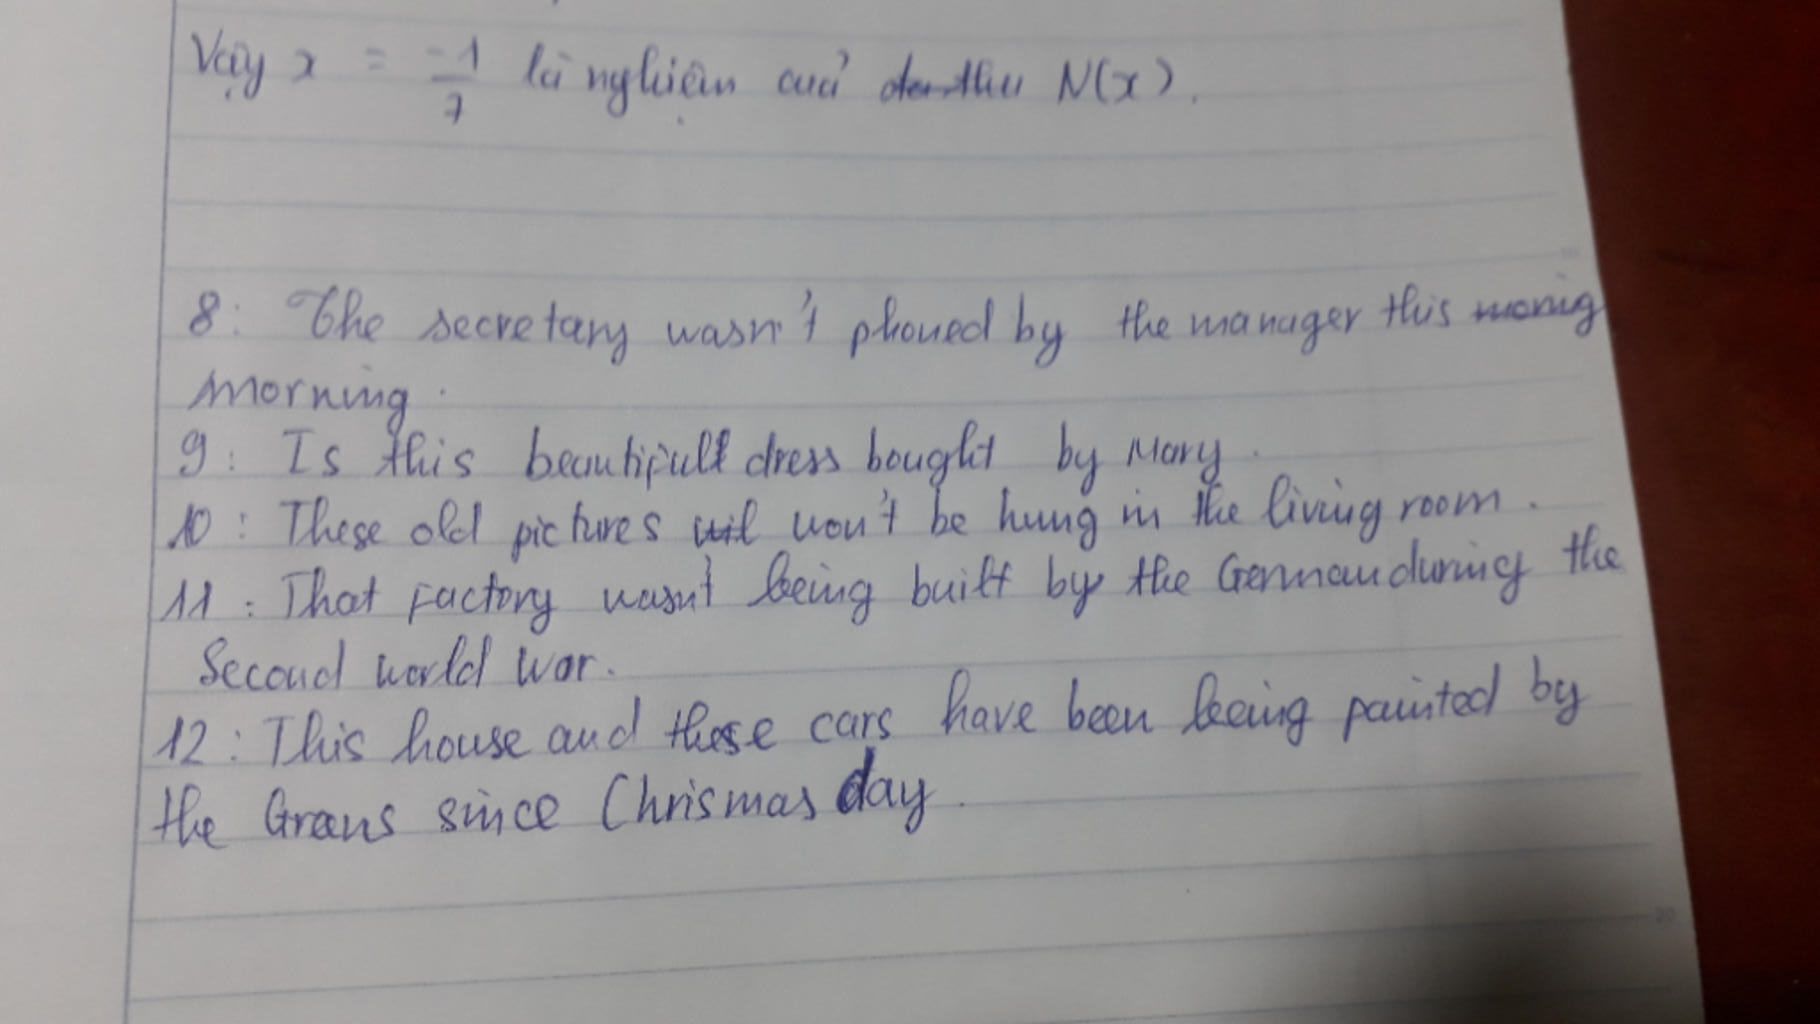 Vậy x = -1/7 là nghiệm của đa thức N(x).
8: The secretary wasn't phoned by the manager this monig
morning.
9: Is this beautifull dress bought by Mary.
10: These old pictures wil won't be hung in the living room.
11: That factory wasn't being built by the German during the
Second world war.
12: This house and these cars have been being painted by
the Greens since Chrismas day.